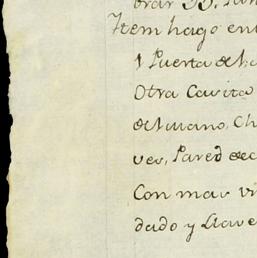 Item hago en
1 Puerta de
Otra Cavita
del mano, Ch
ver, Pared de
Con mas vi
dado y Llave